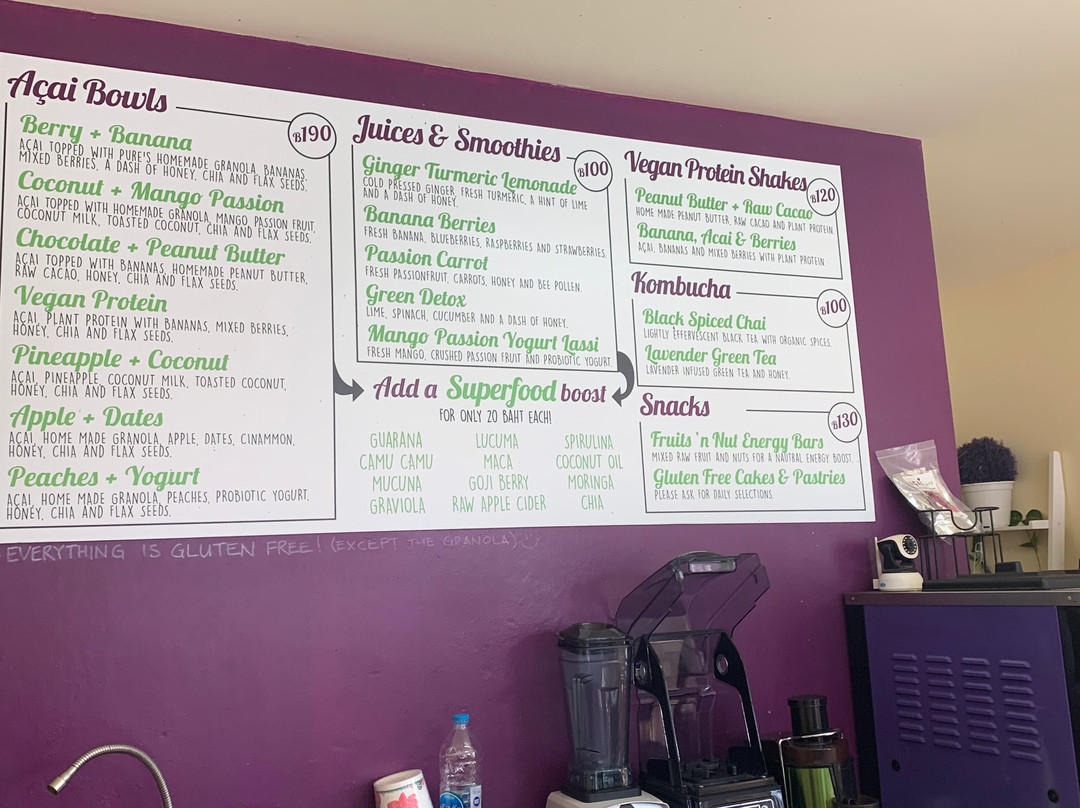 Açai Bowls
฿190
Berry + Banana
AÇAI TOPPED WITH PURE'S HOMEMADE GRANOLA, BANANAS,
MIXED BERRIES, A DASH OF HONEY, CHIA AND FLAX SEEDS.
Coconut + Mango Passion
AÇAI TOPPED WITH HOMEMADE GRANOLA, MANGO, PASSION FRUIT,
COCONUT MILK, TOASTED COCONUT, CHIA AND FLAX SEEDS.
Chocolate + Peanut Butter
AÇAI TOPPED WITH BANANAS, HOMEMADE PEANUT BUTTER,
RAW CACAO, HONEY, CHIA AND FLAX SEEDS.
Vegan Protein
AÇAI, PLANT PROTEIN WITH BANANAS, MIXED BERRIES,
HONEY, CHIA AND FLAX SEEDS.
Pineapple + Coconut
AÇAI, PINEAPPLE, COCONUT MILK, TOASTED COCONUT,
HONEY, CHIA AND FLAX SEEDS.
Apple + Dates
AÇAI, HOME MADE GRANOLA, APPLE, DATES, CINAMMON,
HONEY, CHIA AND FLAX SEEDS.
Peaches + Yogurt
AÇAI, HOME MADE GRANOLA, PEACHES, PROBIOTIC YOGURT,
HONEY, CHIA AND FLAX SEEDS.
Juices & Smoothies
฿100
Ginger Turmeric Lemonade
COLD PRESSED GINGER, FRESH TURMERIC, A HINT OF LIME
AND A DASH OF HONEY.
Banana Berries
FRESH BANANA, BLUEBERRIES, RASPBERRIES AND STRAWBERRIES.
Passion Carrot
FRESH PASSIONFRUIT, CARROTS, HONEY AND BEE POLLEN.
Green Detox
LIME, SPINACH, CUCUMBER AND A DASH OF HONEY.
Mango Passion Yogurt Lassi
FRESH MANGO, CRUSHED PASSION FRUIT AND PROBIOTIC YOGURT.
Add a Superfood boost
FOR ONLY 20 BAHT EACH!
GUARANA LUCUMA SPIRULINA
CAMU CAMU MACA COCONUT OIL
MUCUNA GOJI BERRY MORINGA
GRAVIOLA RAW APPLE CIDER CHIA
Vegan Protein Shakes
฿120
Peanut Butter + Raw Cacao
HOME MADE PEANUT BUTTER, RAW CACAO AND PLANT PROTEIN.
Banana, Acai & Berries
AÇAI, BANANAS AND MIXED BERRIES WITH PLANT PROTEIN
Kombucha
฿100
Black Spiced Chai
LIGHTLY EFFERVESCENT BLACK TEA WITH ORGANIC SPICES.
Lavender Green Tea
LAVENDER INFUSED GREEN TEA AND HONEY.
Snacks
฿130
Fruits 'n Nut Energy Bars
MIXED RAW FRUIT AND NUTS FOR A NAUTRAL ENERGY BOOST.
Gluten Free Cakes & Pastries
PLEASE ASK FOR DAILY SELECTIONS.
EVERYTHING IS GLUTEN FREE! (EXCEPT THE GRANOLA)